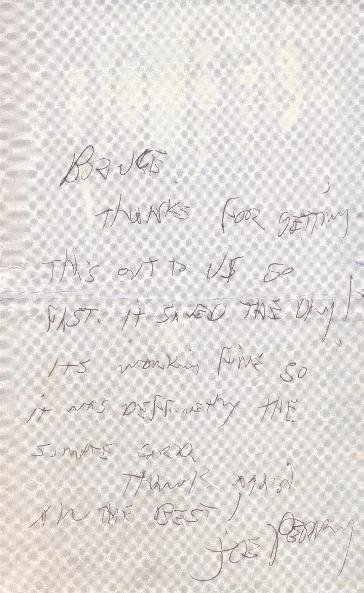 BRUCE
THANKS FOR GETTING
THIS OUT TO US SO
FAST. IT SAVED THE DAY!
ITS WORKING FINE SO
IT WAS DEFINETLY THE
THANK AGAIN
ALL THE BEST,
JOE